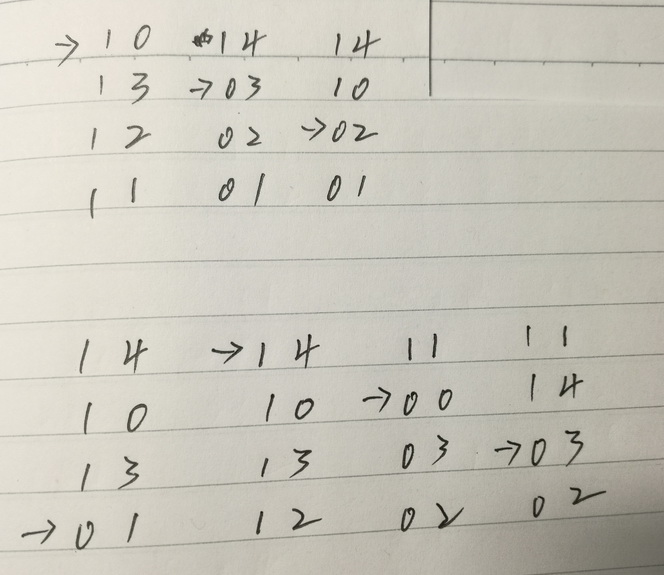 → 1 0 14 14
1 3 → 03 10
1 2 02 → 02
1 1 01 01
1 4 → 1 4 11 11
1 0 1 0 → 00 14
1 3 1 3 03 → 03
→ 0 1 1 2 02 02